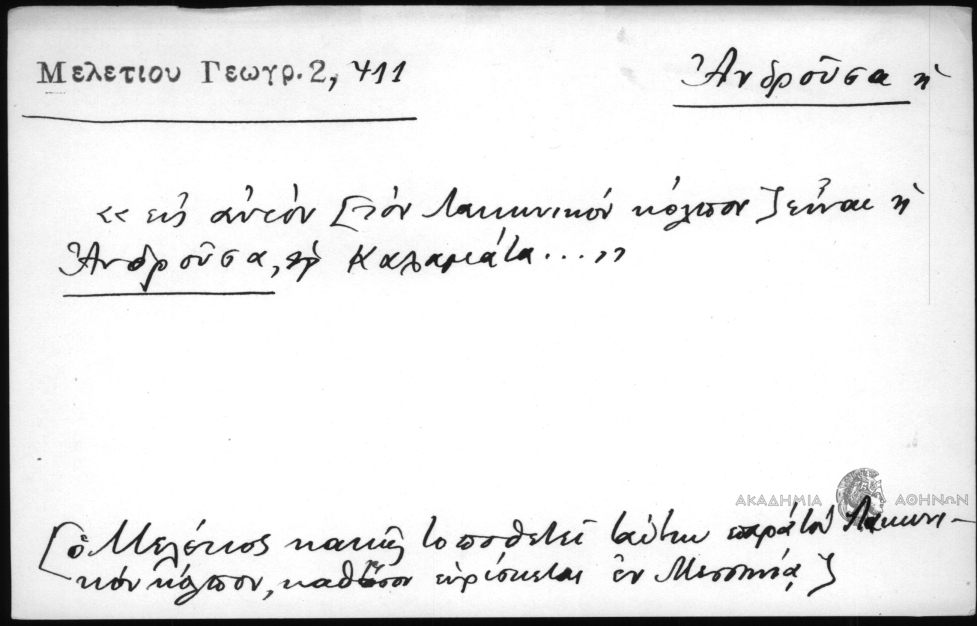 Μελετίου Γεωγρ. 2, 411
Ἀνδροῦσα ἡ
« εἰς αὐτὸν [τὸν Λακωνικὸν κόλπον] εἶναι ἡ
Ἀνδροῦσα, ἡ Καλαμάτα... »
ΑΚΑΔΗΜΙΑ ΑΘΗΝΩΝ
[ὁ Μελέτιος κακῶς τοποθετεῖ ταύτην παρὰ τὸν Λακωνι-
κὸν κόλπον, καθ' ὅσον εὑρίσκεται ἐν Μεσσηνίᾳ]